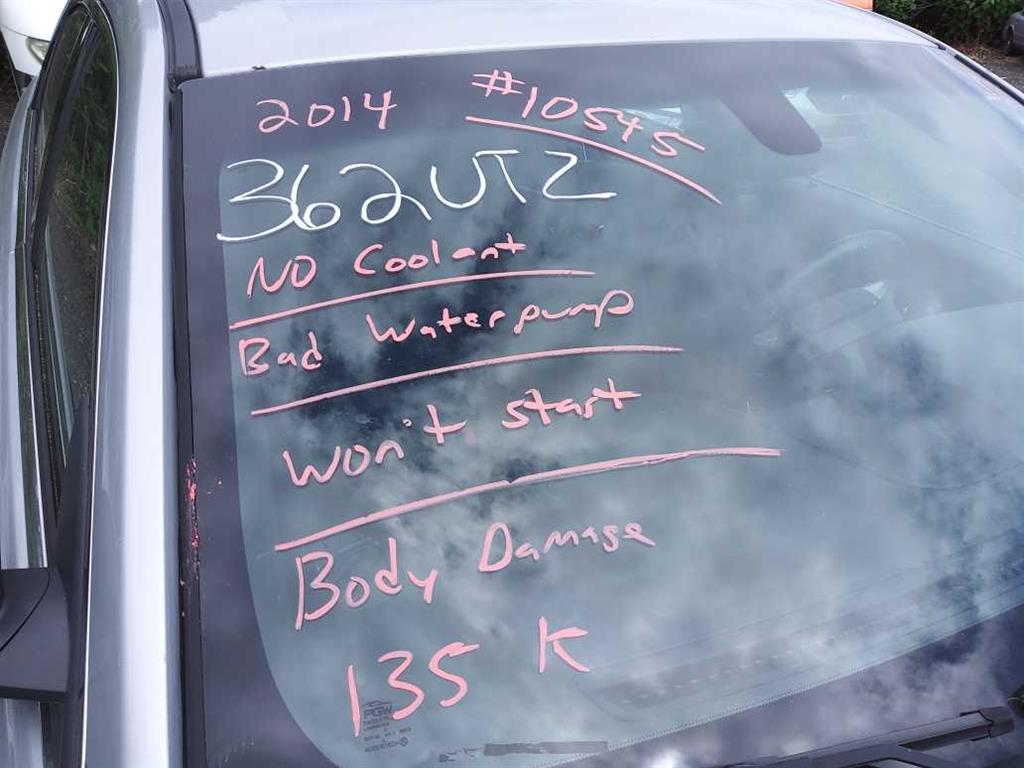 2014 #10545
362UTZ
NO Coolant
Bad Waterpump
Won't start
Body Damage
135 K
PGW